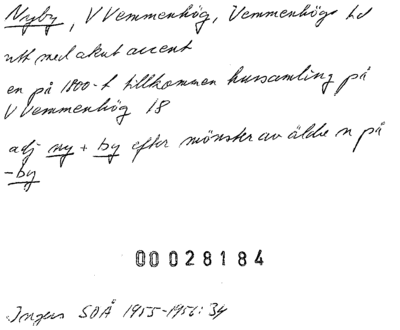 Nyby, V Vemmenhög, Vemmenhögs hd
utt med akut accent
en på 1800-t tillkommen hussamling på
V Vemmenhög 18
adj ny + by efter mönster av äldre n på
-by
00028184
Ingers SOÅ 1955-1956:34